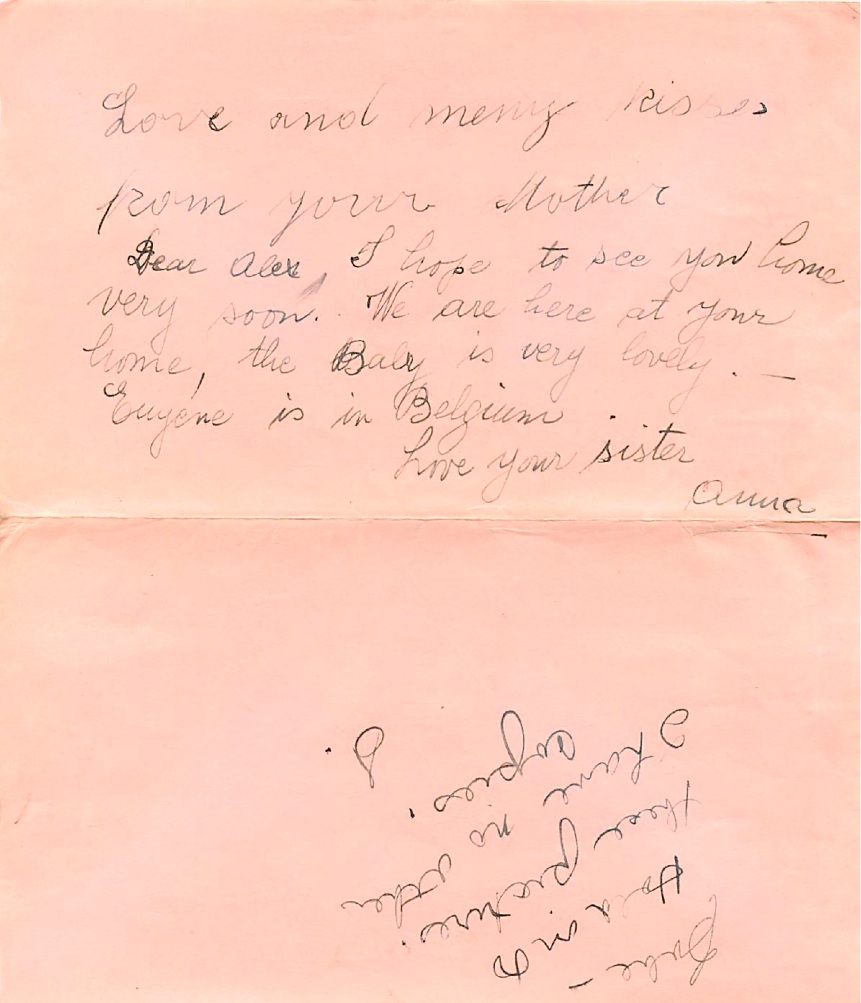 Love and meny kisses
from your Mother
Dear Alex, I hope to see you home
very soon. We are here at your
home, the Baby is very lovely. —
Eugene is in Belgium.
Love your sister
Anna
Hold on to
these pictures.
I have no other
copies.
J.